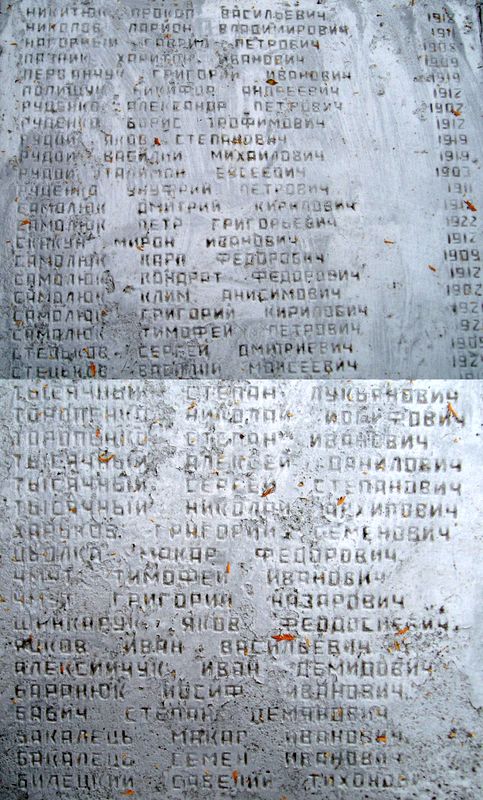 НИКИТЮК ПРОКОП ВАСИЛЬЕВИЧ 1918
НИКОЛОВ ЛАРИОН ВЛАДИМИРОВИЧ
НАГОРНЫЙ ГАВРИЛ ПЕТРОВИЧ 1908
ПАЗЮК ХАРИТОН ИВАНОВИЧ 1909
ПЕРВАНЧУК ГРИГОРИЙ ИВАНОВИЧ 1919
ПОЛИЩУК НИКИФОР АНДРЕЕВИЧ 1912
РУДЕНКО АЛЕКСАНДР ПЕТРОВИЧ 1902
РУДЕНКО БОРИС ТРОФИМОВИЧ 1912
РУДОЙ ЯКОВ СТЕПАНОВИЧ 1919
РУДОЙ ВАСИЛИЙ МИХАЙЛОВИЧ 1919
РУДОЙ ПТАЛИМОН ЕВСЕЕВИЧ 1903
РУДЕНКО ОНУФРИЙ ПЕТРОВИЧ
САМОЛЮК ДМИТРИЙ КИРИЛОВИЧ
САМОЛЮК ПЕТР ГРИГОРЬЕВИЧ 1922
СКАКУН МИРОН ИВАНОВИЧ 1912
САМОЛЮК КАРП ФЕДОРОВИЧ 1909
САМОЛЮК КОНДРАТ ФЕДОРОВИЧ 1912
САМОЛЮК КЛИМ АНИСИМОВИЧ 1902
САМОЛЮК ГРИГОРИЙ КИРИЛОВИЧ
САМОЛЮК ТИМОФЕЙ ПЕТРОВИЧ
СТЕЦЬКОВ СЕРГЕЙ ДМИТРИЕВИЧ 1909
СТЕЦЬКОВ ВАСИЛИЙ МОИСЕЕВИЧ
ТЫСЯЧНЫЙ СТЕПАН ЛУКЬЯНОВИЧ
ТОРОПЕНКО НИКОЛАЙ ИОСИФОВИЧ
ТОРОПЕНКО СТЕПАН ИВАНОВИЧ
ТЫСЯЧНЫЙ АЛЕКСЕЙ ДАНИЛОВИЧ
ТЫСЯЧНЫЙ СЕРГЕЙ СТЕПАНОВИЧ
ТЫСЯЧНЫЙ НИКОЛАЙ АРХИПОВИЧ
ХАРЬКОВ ГРИГОРИЙ СЕМЕНОВИЧ
ЦВОЛКА МАКАР ФЕДОРОВИЧ
ЧМУТ ТИМОФЕЙ ИВАНОВИЧ
ЧМУТ ГРИГОРИЙ НАЗАРОВИЧ
ШИНКАРУК ЯКОВ ФЕОДОСИЕВИЧ
ЯЦКОВ ИВАН ВАСИЛЬЕВИЧ
АЛЕКСИЙЧУК ИВАН ДЕМИДОВИЧ
БАРАНЮК ИОСИФ ИВАНОВИЧ
БАБИЧ СТЕПАН ДЕМЯНОВИЧ
БАКАЛЕЦЬ МАКАР ИВАНОВИЧ
БАКАЛЕЦЬ СЕМЕН ИВАНОВИЧ
БИЛЕЦКИЙ САВЕЛИЙ ТИХОНОВИ